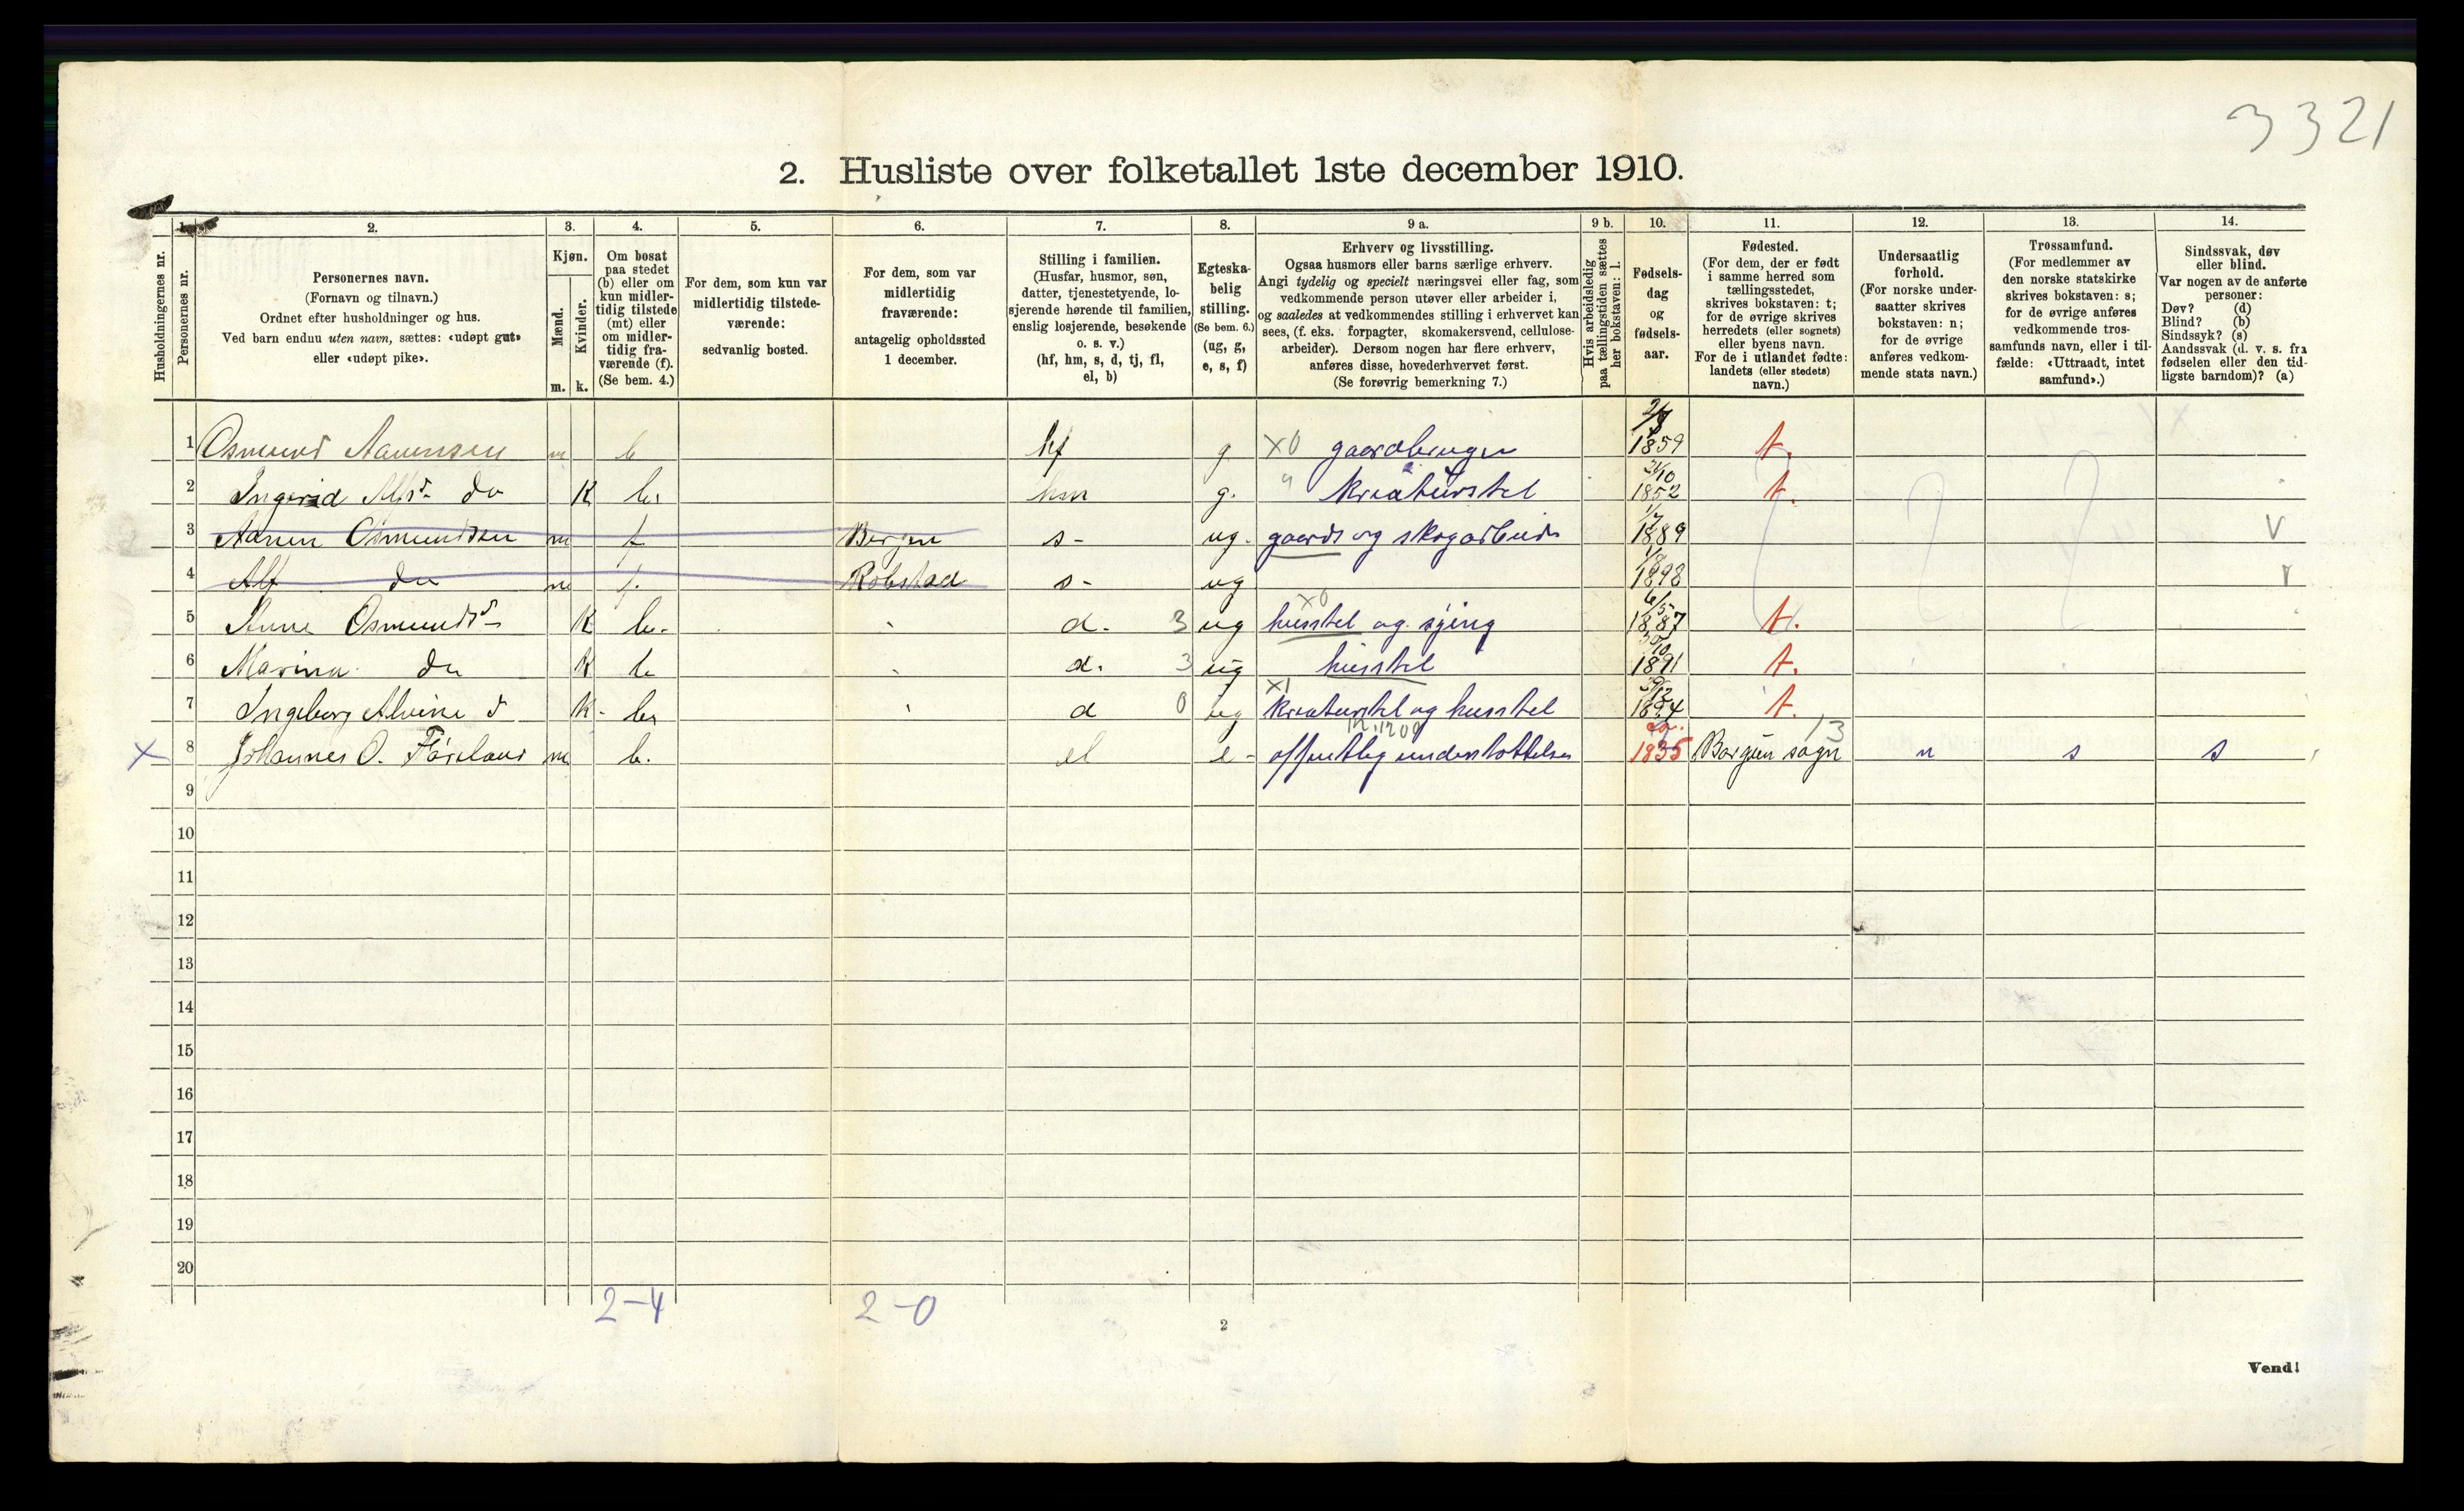 3321
2. Husliste over folketallet 1ste december 1910.
Husholdningernes nr.
1.
Personernes nr.
2.
Personernes navn.
(Fornavn og tilnavn.)
Ordnet efter husholdninger og hus.
Ved barn endnu uten navn, sættes: «udøpt gut»
eller «udøpt pike».
3.
Kjøn.
Mænd.
Kvinder.
m. k.
4.
Om bosat
paa stedet
(b) eller om
kun midler-
tidig tilstede
(mt) eller
om midler-
tidig fra-
værende (f).
(Se bem. 4.)
5.
For dem, som kun var
midlertidig tilstede-
værende:
sedvanlig bosted.
6.
For dem, som var
midlertidig
fraværende:
antagelig opholdssted
1 december.
7.
Stilling i familien.
(Husfar, husmor, søn,
datter, tjenestetyende, lo-
sjerende hørende til familien,
enslig losjerende, besøkende
o. s. v.)
(hf, hm, s, d, tj, fl,
el, b)
8.
Egteska-
belig
stilling.
(Se bem. 6.)
(ug, g,
e, s, f)
9 a.
Erhverv og livsstilling.
Ogsaa husmors eller barns særlige erhverv.
Angi tydelig og specielt næringsvei eller fag, som
vedkommende person utøver eller arbeider i,
og saaledes at vedkommendes stilling i erhvervet kan
sees, (f. eks. forpagter, skomakersvend, cellulose-
arbeider). Dersom nogen har flere erhverv,
anføres disse, hovederhvervet først.
(Se forøvrig bemerkning 7.)
9 b.
Hvis arbeidsledig
paa tællingstiden sættes
her bokstaven: l.
10.
Fødsels-
dag
og
fødsels-
aar.
11.
Fødested.
(For dem, der er født
i samme herred som
tællingsstedet,
skrives bokstaven: t;
for de øvrige skrives
herredets (eller sognets)
eller byens navn.
For de i utlandet fødte:
landets (eller stedets)
navn.)
12.
Undersaatlig
forhold.
(For norske under-
saatter skrives
bokstaven: n;
for de øvrige
anføres vedkom-
mende stats navn.)
13.
Trossamfund.
(For medlemmer av
den norske statskirke
skrives bokstaven: s;
for de øvrige anføres
vedkommende tros-
samfunds navn, eller i til-
fælde: «Uttraadt, intet
samfund».)
14.
Sindssvak, døv
eller blind.
Var nogen av de anførte
personer:
Døv? (d)
Blind? (b)
Sindssyk? (s)
Aandssvak (d. v. s. fra
fødselen eller den tid-
ligste barndom)? (a)
1 Osmund Aanensen m b hf g X0 gaardbruger 1859 t.
2 Ingerid Alfsd. do K b. hm g. " kreaturstel 1852 t.
3 Aanen Osmundsen m f Bergen s- ug. gaards og skogarbeide 1/7 1889 V
4 Alf do m f. Robstad s- ug 1898 V
5 Anne Osmundsd K b. d. 3 ug X0 husstel og sying 6/5 1887 t.
6 Marina do K b d. 3 ug husstel 30/10 1891 t.
7 Ingeborg Alvine d K- b. d 0 ug X1 kreaturstel og husstel 29/12 1894 t.
X 8 Johannes O. Faaeland m b. el e- offentlig understøttelse 1835 sogn 13 n s s
9
10
11
12
13
14
15
16
17
18
19
20
2-4 2-0
2
Vend!